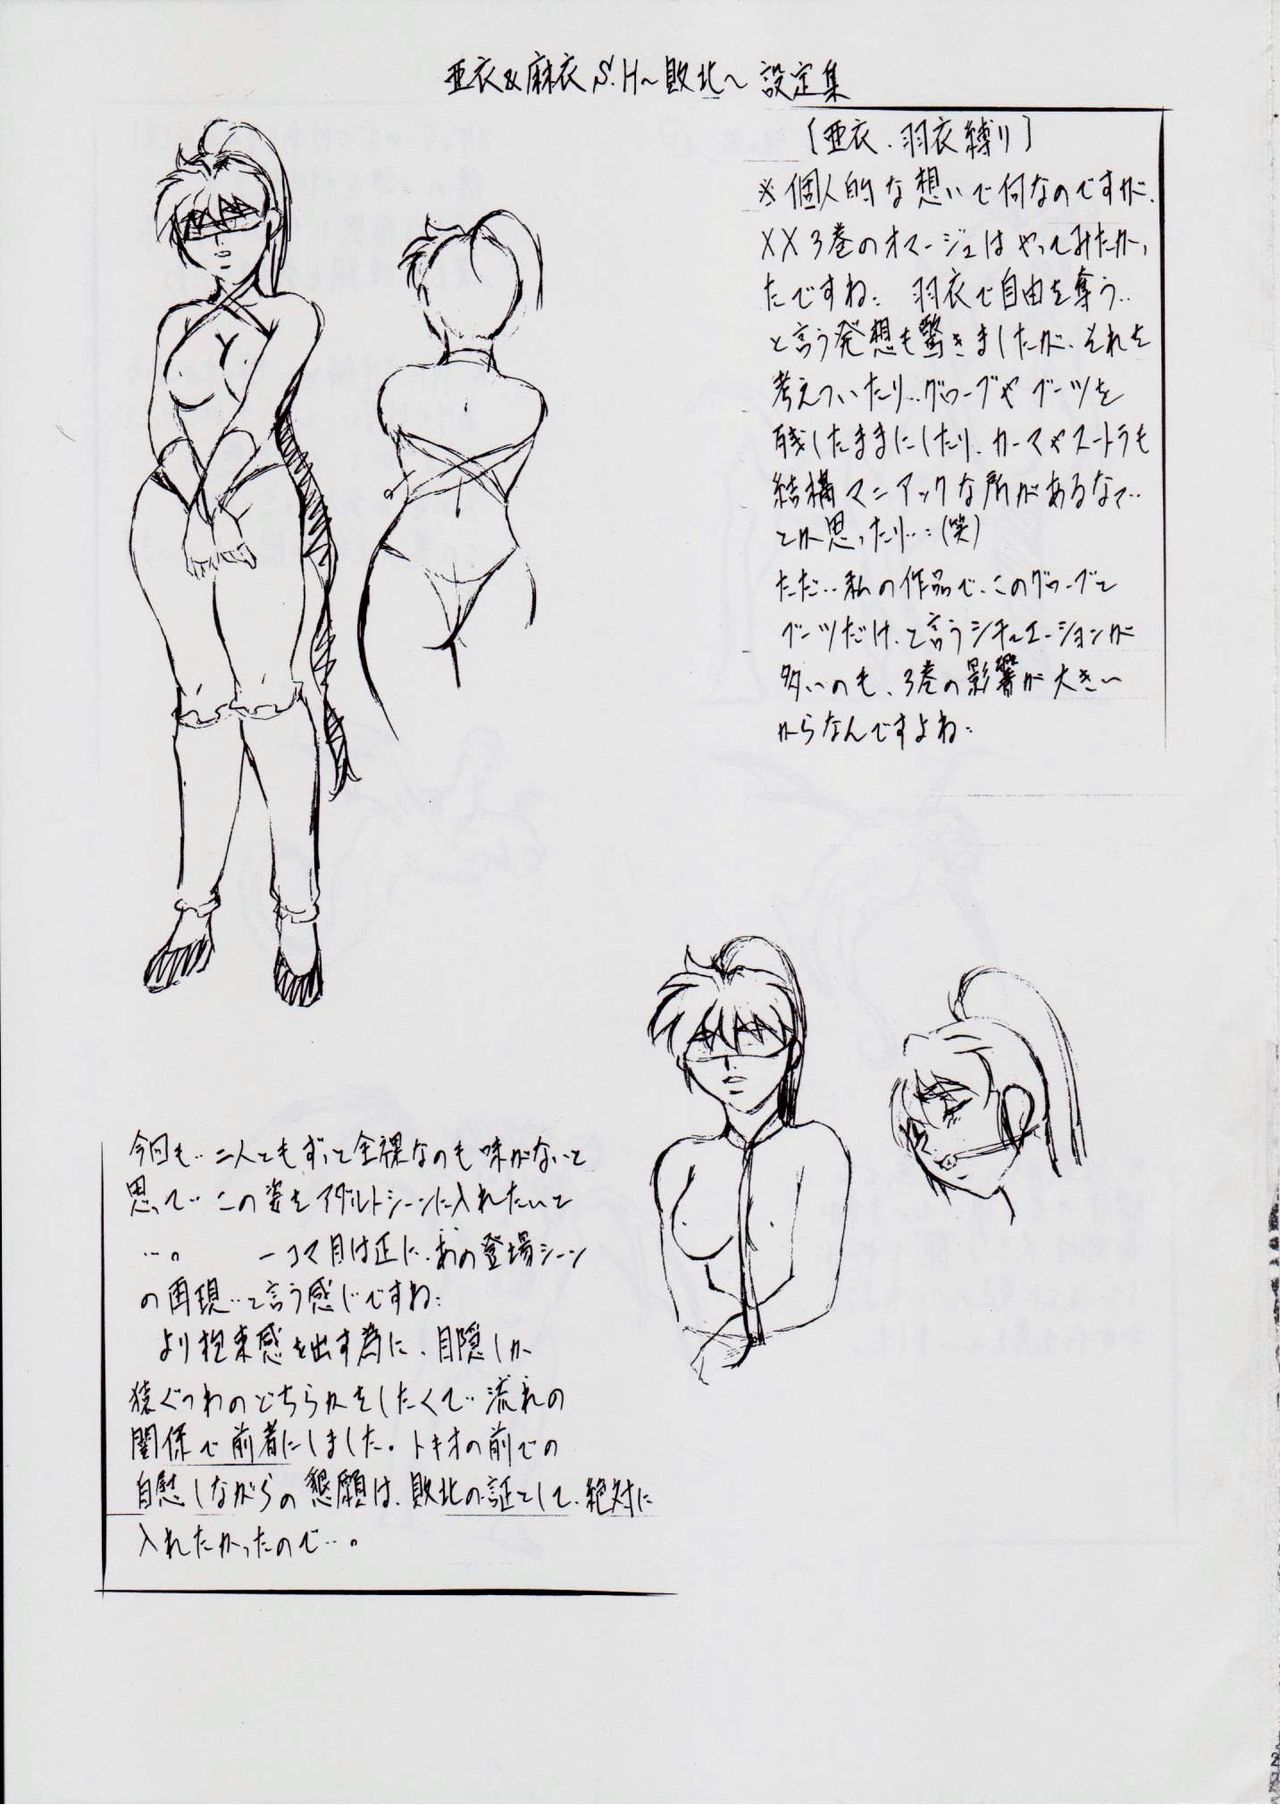 亜衣&麻衣 S.H～敗北～ 設定集
[亜衣、羽衣縛り]
※個人的な想いで何なのですが、
XX3巻のオマージュはやってみたかっ
たですね： 羽衣で自由を奪う‥
と言う発想も驚きましたが、それを
考えついたり‥グローブやブーツを
残したままにしたり、カーマやスートラも
結構マニアックな所があるなって‥
とか思ったり‥：(笑)
ただ‥私の作品で、このグローブと
ブーツだけ、と言うシチュエーションが
多いのも、3巻の影響が大きい
からなんですよね：
今回も‥二人ともずっと全裸なのも味がないと
思って‥この姿をアダルトシーンに入れたいと
‥。 一コマ目は正に、あの登場シーン
の再現‥と言う感じですね：
より拘束感を出す為に、目隠しか
猿ぐつわのどちらかをしたくて‥流れの
関係で前者にしました。トキオの前での
自慰しながらの懇願は、敗北の証として、絶対に
入れたかったので‥。